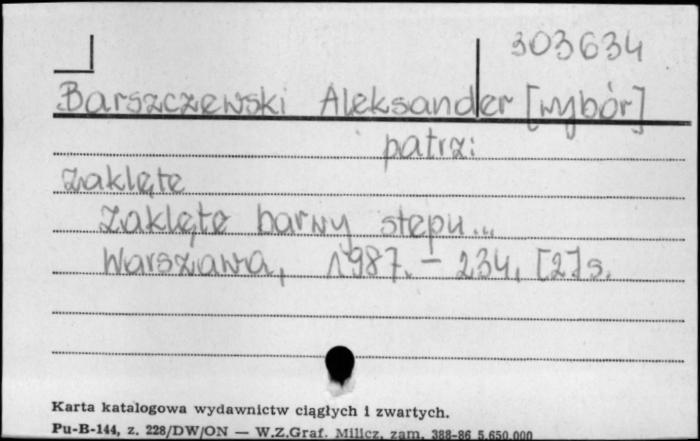 303634
Barszczewski Aleksander [wybór]
patrz:
Zaklęte
Zaklęte barwy stepu...
Warszawa, 1987. - 234, [2] s.
Karta katalogowa wydawnictw ciągłych i zwartych.
Pu-B-144, z. 228/DW/ON — W.Z.Graf. Milicz, zam. 388-86 5.650.000